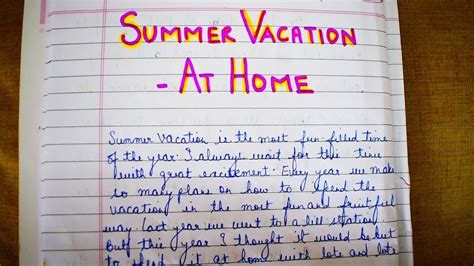 SUMMER VACATION
- AT HOME
Summer Vacation is the most fun-filled time
of the year. I always wait for this time
with great excitement. Every year we make
so many plans on how to spend the
vacation in the most fun and fruitful
way last year we went to a hill station.
But this year I thought it would be
to spend it at home with lots and lots